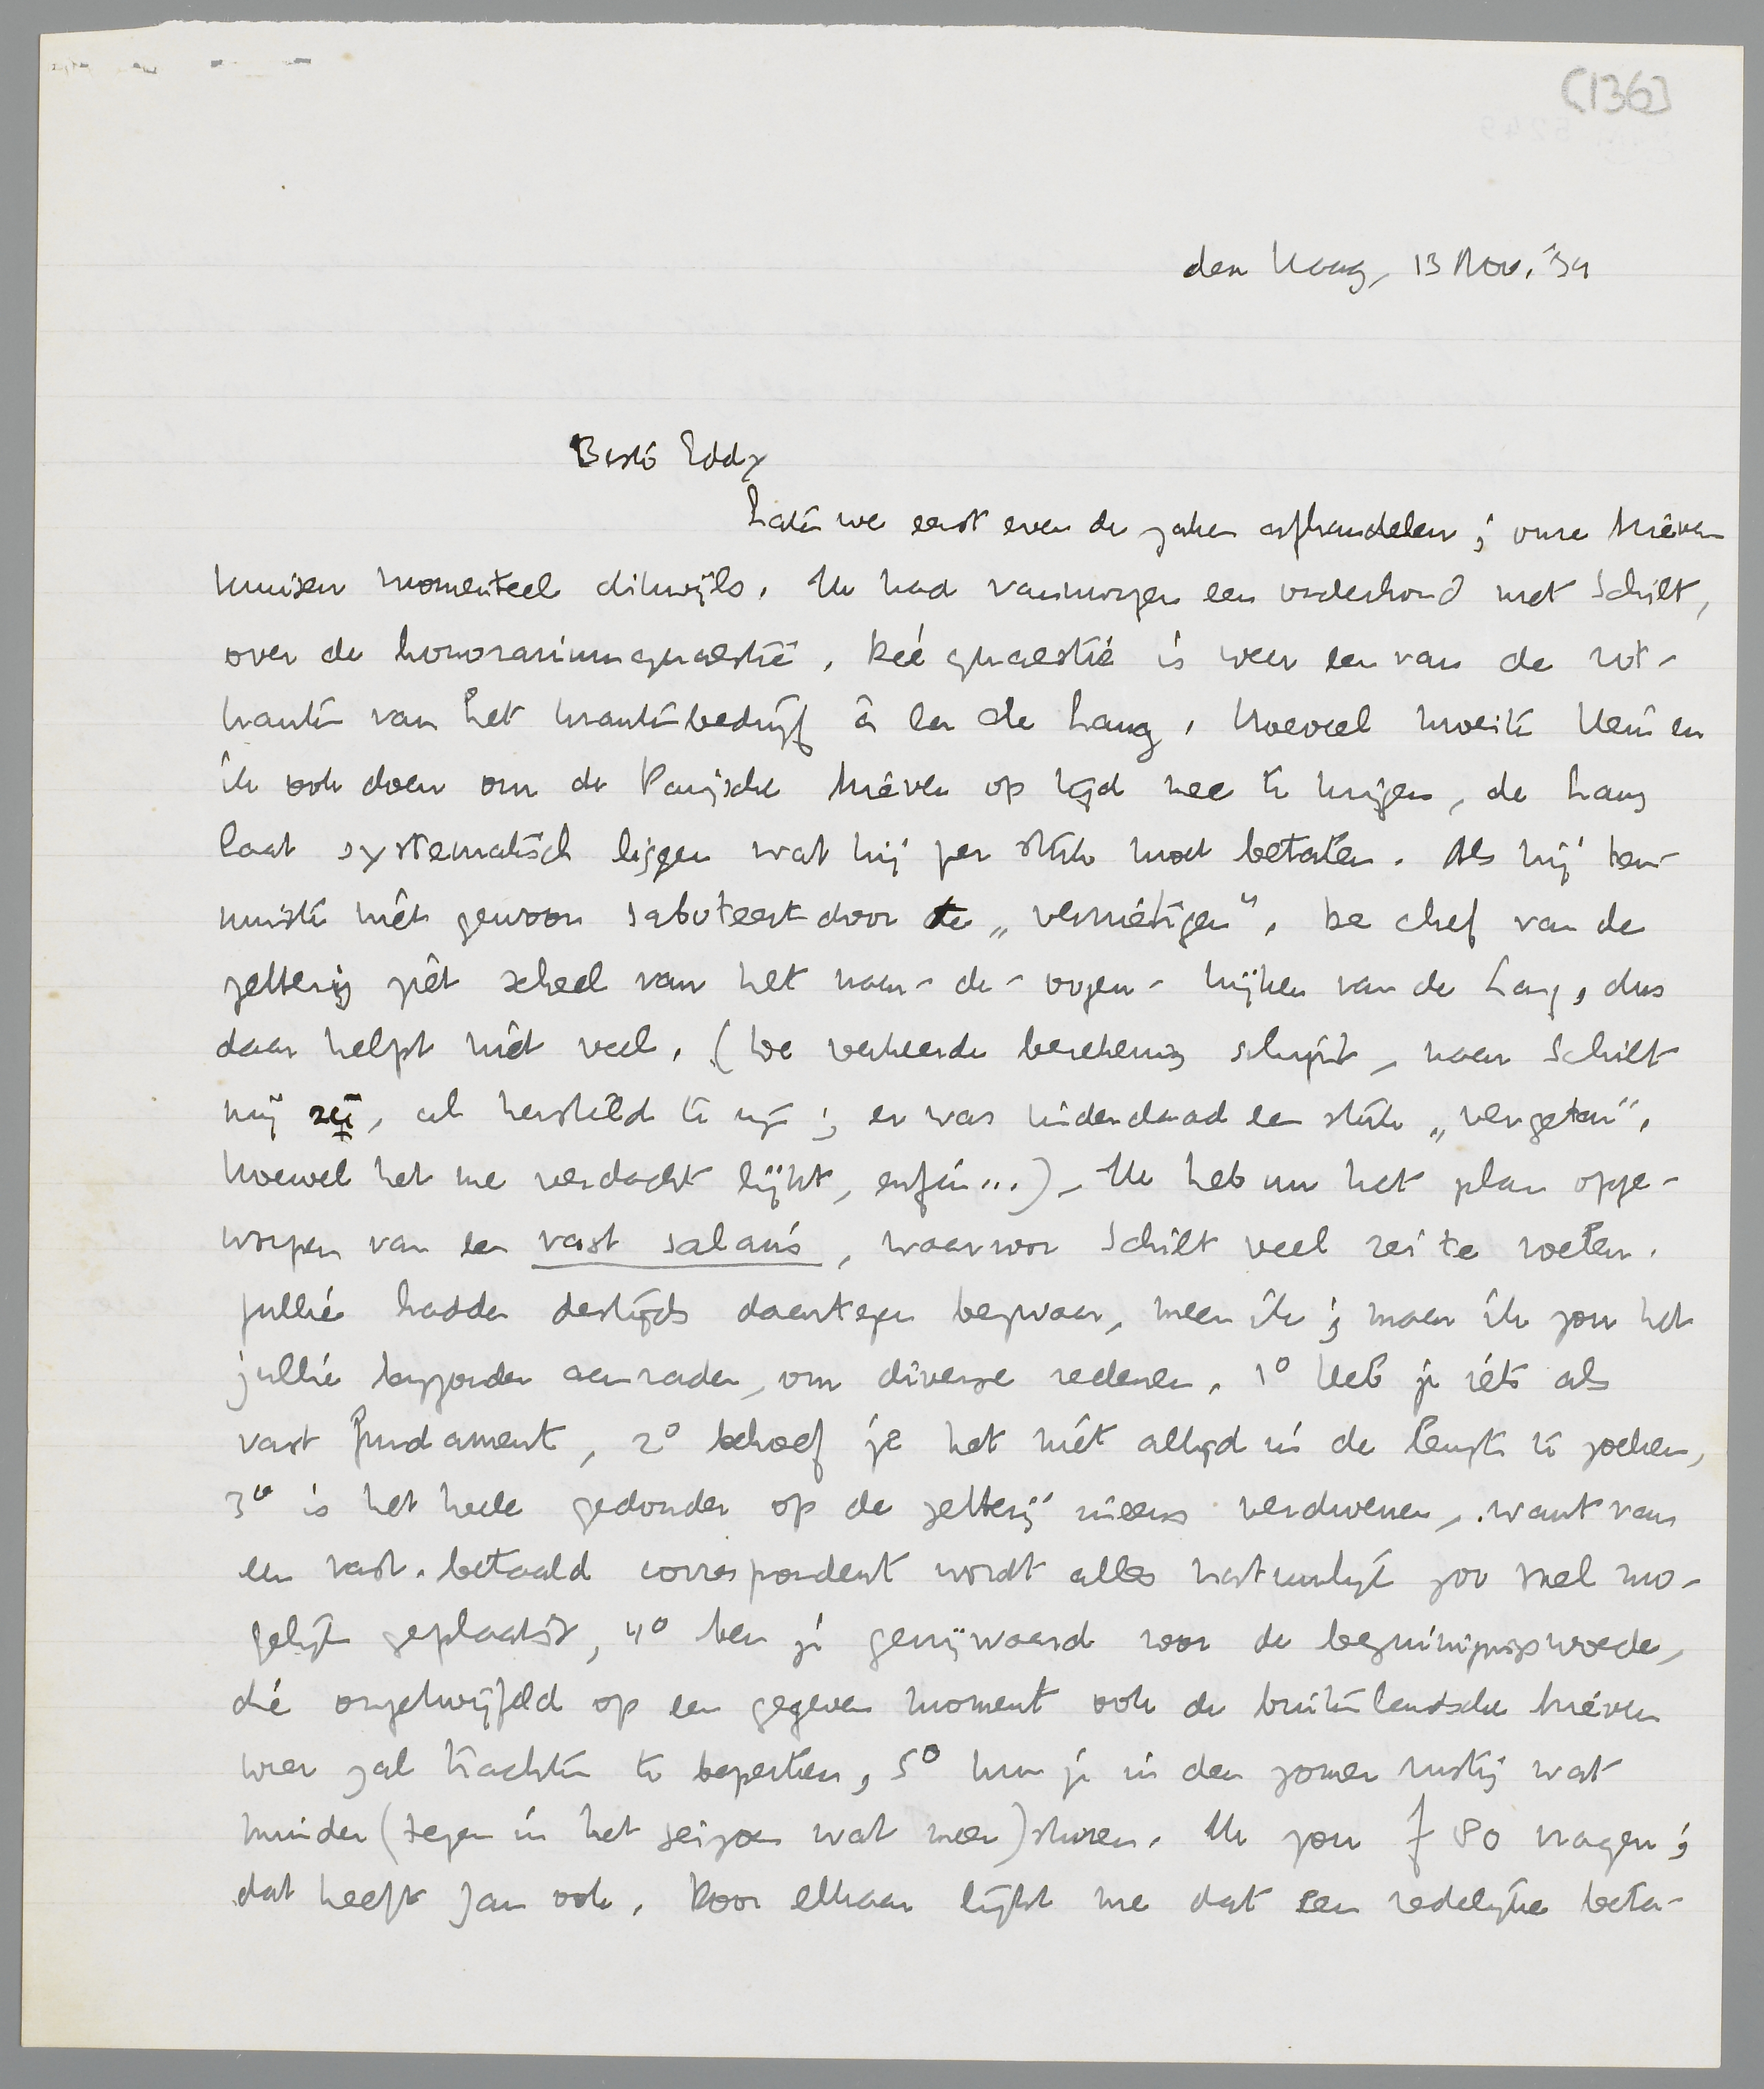 (136)
den Haag, 13 Nov. '34
Beste Eddy
Laten we eerst even de zaken afhandelen; onze brieven
kruisen momenteel dikwijls. Ik had vanmorgen een onderhoud met Schilt,
over de honorariumquaestie. Deé quaestie is weer een van de rot-
kanten van het krantenbedrijf à la de Lang. Hoeveel moeite Hein en
ik ook doen om de Parijsche brieven op tijd mee te krijgen, de Lang
laat systematisch liggen wat hij per stuk moet betalen. Als hij ten-
minste niet gewoon saboteert door te „vernietigen". De chef van de
zetterij ziet scheel van het naar-de-oogen-kijken van de Lang, dus
daar helpt niet veel. (De verkeerde berekening schijnt, naar Schilt
mij zei, al hersteld te zijn; er was inderdaad een stuk „vergeten",
hoewel het me verdacht lijkt, enfin...). Ik heb nu het plan opge-
worpen van een vast salaris, waarvoor Schilt veel zei te voelen.
Jullie hadden destijds daartegen bezwaar, meen ik; maar ik zou het
jullie bijzonder aanraden, om diverse redenen. 1° Heb je iets als
vast fundament, 2° behoef je het niet altijd in de lengte te zoeken,
3° is het heele gedonder op de zetterij ineens verdwenen, want van
een vast-betaald correspondent wordt alles natuurlijk zoo snel mo-
gelijk geplaatst, 4° ben je gevrijwaard voor de bezuinigingswoede,
die ongetwijfeld op een gegeven moment ook de buitenlandsche brieven
weer zal trachten te beperken, 5° kun je in den zomer rustig wat
minder (tegen in het seizoen wat meer) sturen. Ik zou f 80 vragen;
dat heeft Jan ook. Door elkaar lijkt me dat een redelijke beta-